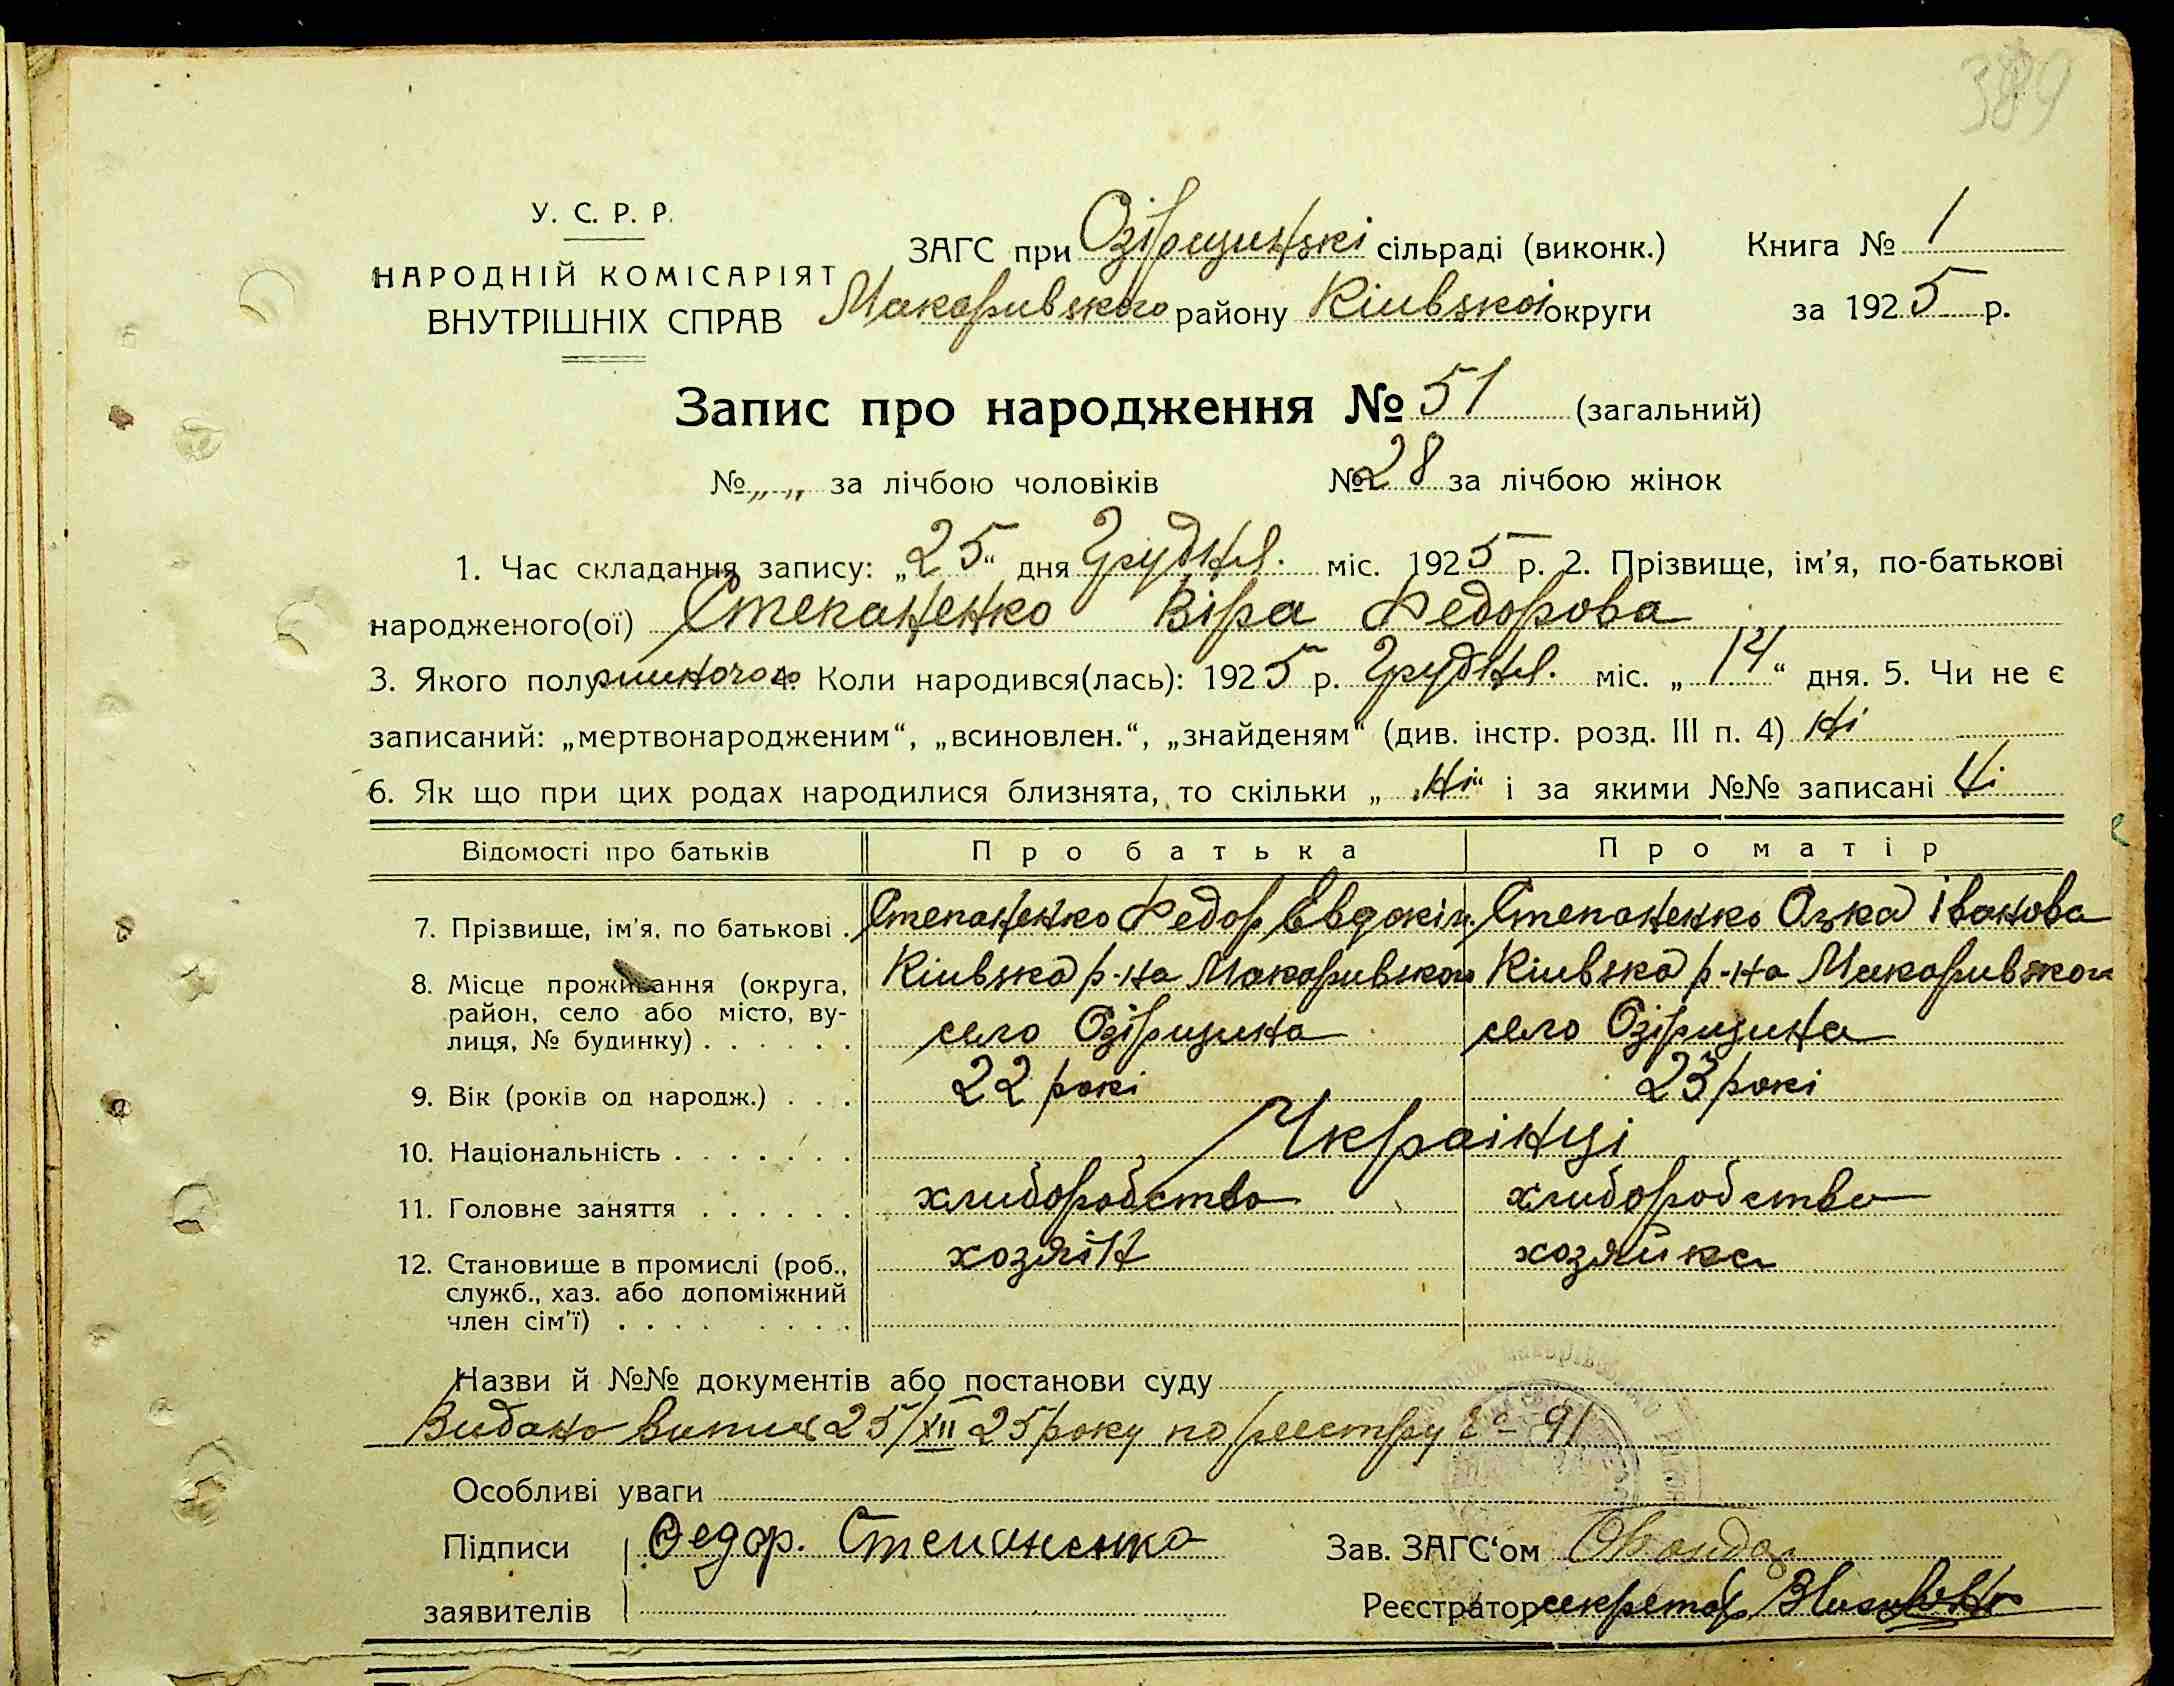 389
У. С. Р. Р.
НАРОДНІЙ КОМІСАРІЯТ
ВНУТРІШНІХ СПРАВ
ЗАГС при Озірщинскі сільраді (виконк.) Книга № 1
Макаривского району Киівскоі округи за 1925 р.
Запис про народження № 51 (загальний)
№ „ „ за лічбою чоловіків № 28 за лічбою жінок
1. Час складання запису: „25“ дня Грудня. міс. 1925 р. 2. Прізвище, ім'я, по-батькові
народженого(ої) Степаненко Віра Федорова
3. Якого полу жиночого 4. Коли народився(лась): 1925 р. Грудня. міс. „14“ дня. 5. Чи не є
записаний: „мертвонародженим“, „всиновлен.“, „знайденям“ (див. інстр. розд. III п. 4) ні
6. Як що при цих родах народилися близнята, то скільки „ні“ і за якими №№ записані ні
Відомості про батьків Про батька Про матір
7. Прізвище, ім'я, по батькові . Степаненко Федор Евдоким. Степаненко Іванова
8. Місце проживання (округа, Киівска р-на Макаривского Киівска р-на Макаривского
район, село або місто, ву- село Озірщина село Озірщина
лиця, № будинку) . . . . . .
9. Вік (років од народж.) . . . 22 рокі 23 рокі
10. Національність . . . . . . . Украінці
11. Головне заняття . . . . . . хлиборобство хлиборобство
12. Становище в промислі (роб., хозяін хозяйка
служб., хаз. або допоміжний
член сім'ї) . . . . . . . .
Назви й №№ документів або постанови суду
Видано випис 25/XII 25 року по реестру № 91
Особливі уваги
Підписи Федор. Степаненко Зав. ЗАГС'ом
заявителів Реєстратор секретар